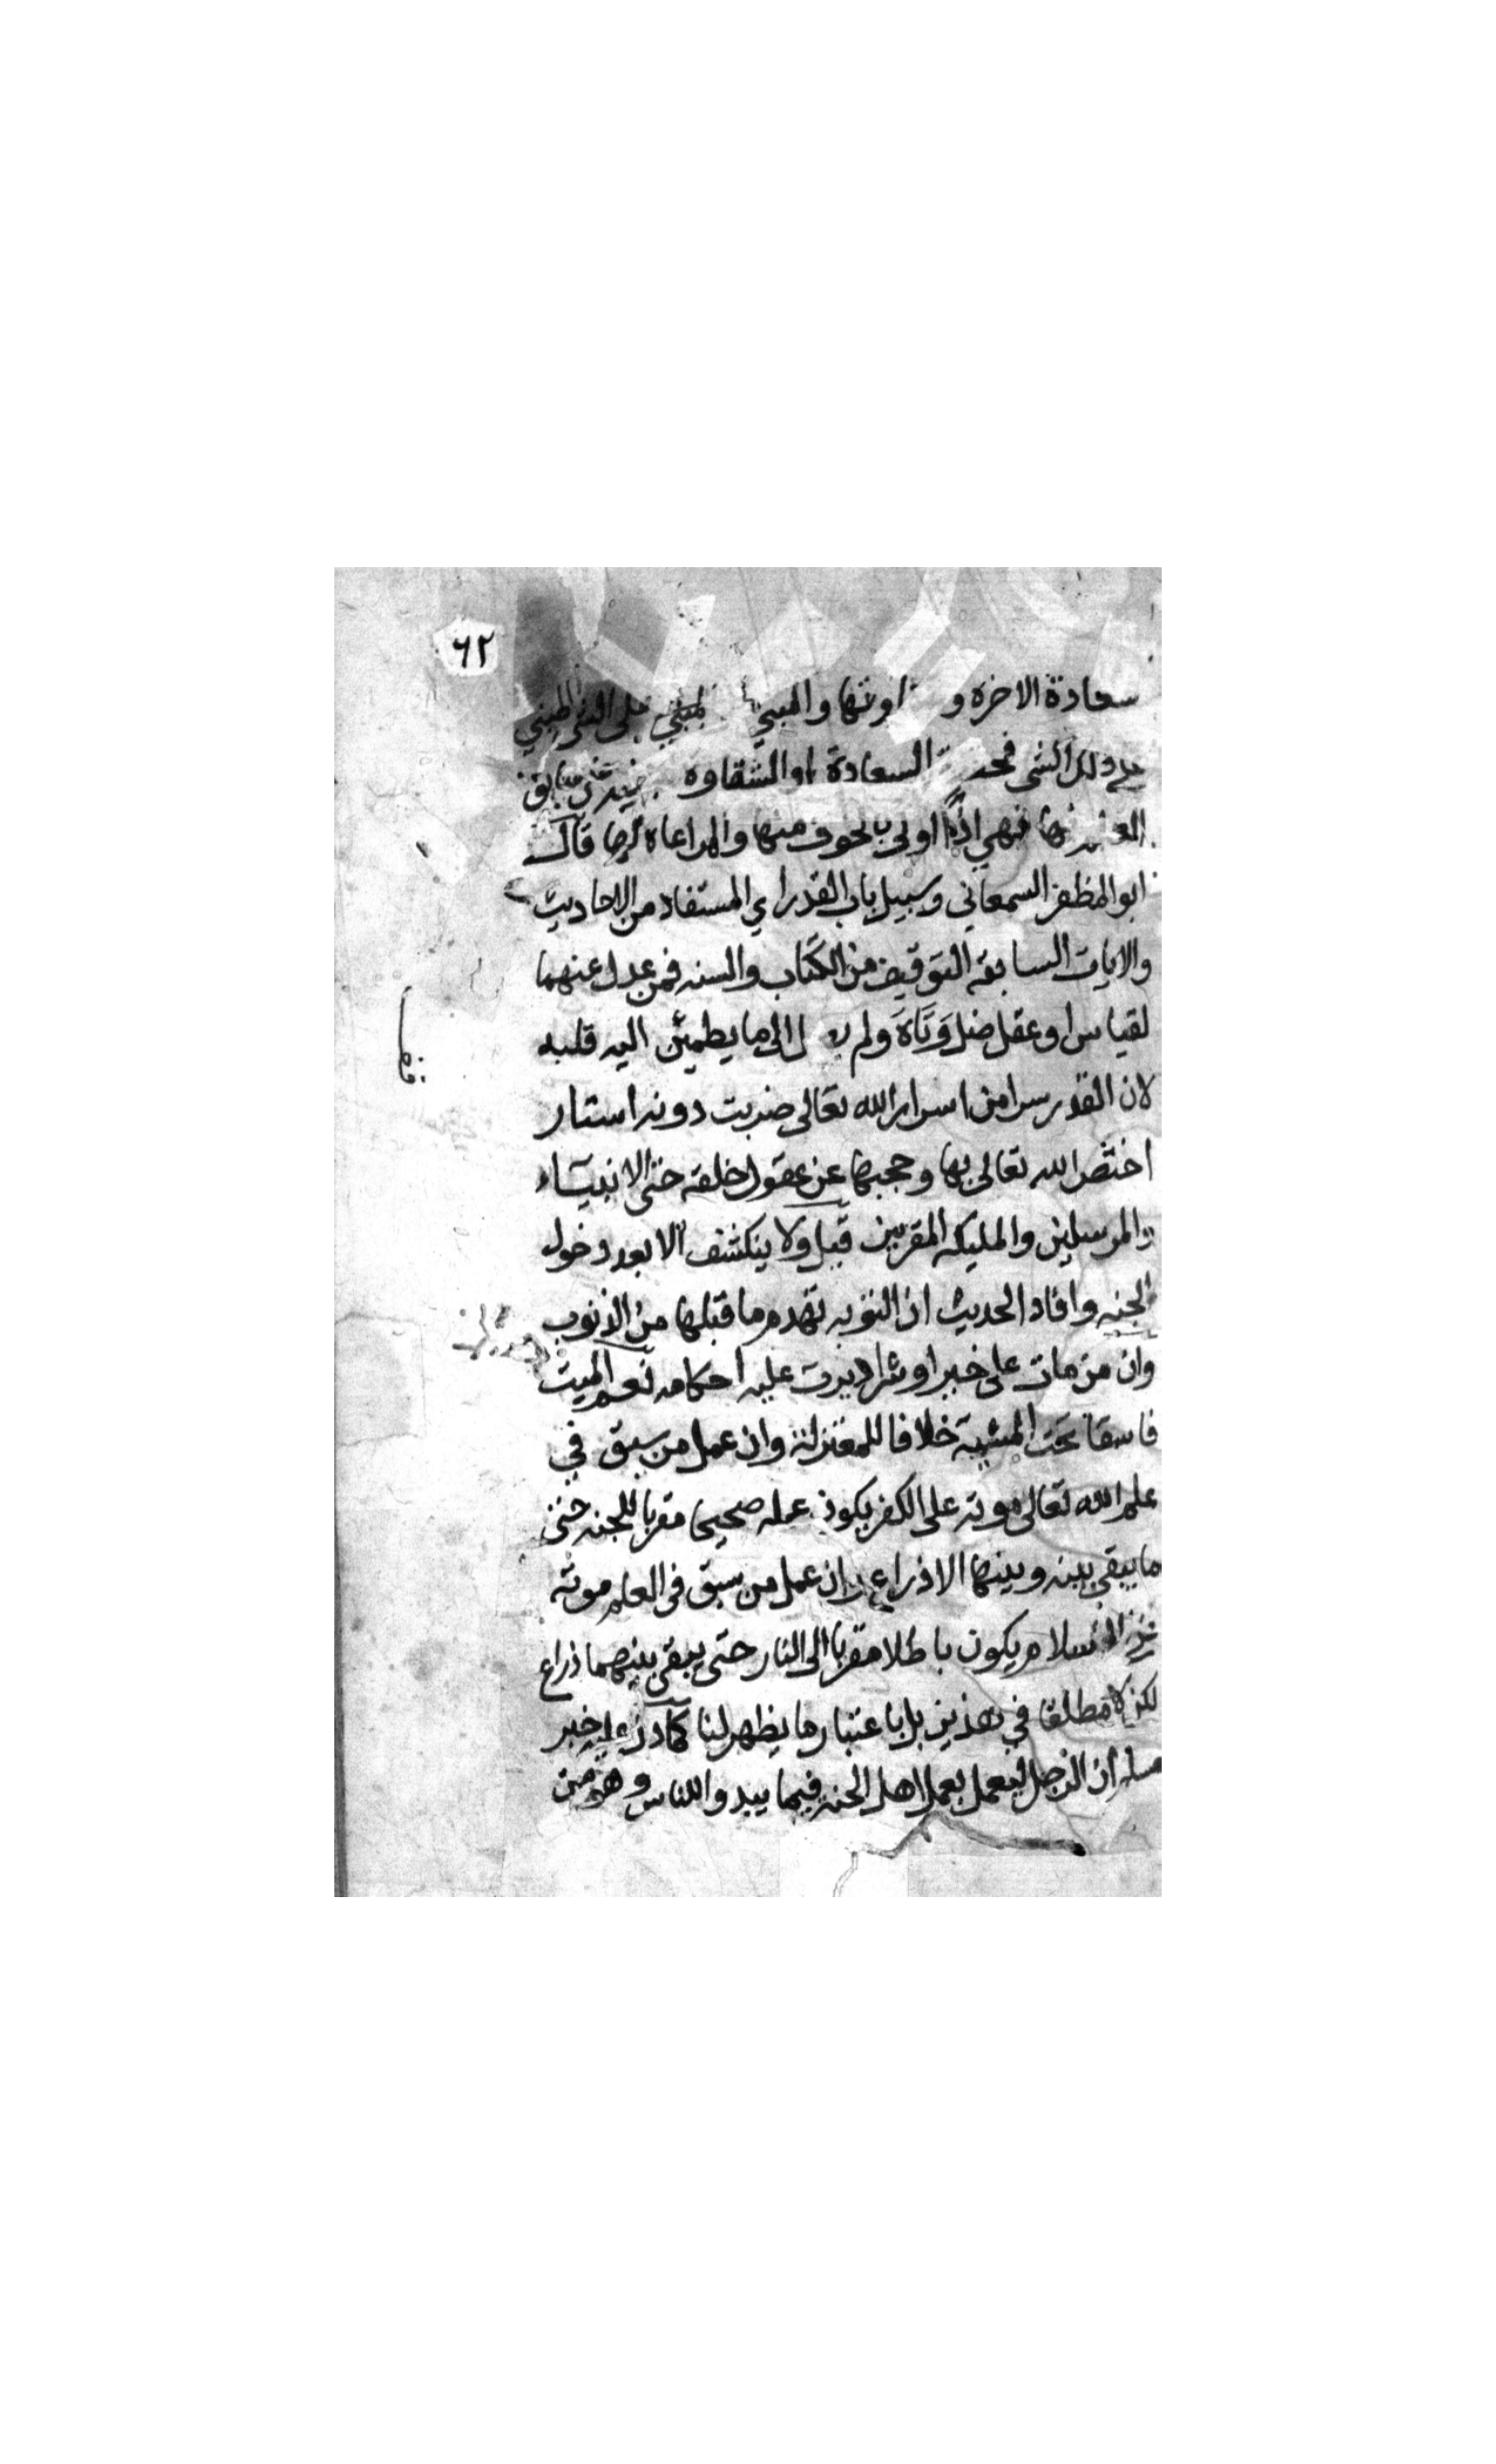 ٦٢
سعادة الاخره و اوتها والمبني على
على ذلك الشي فمحد السعادة او الشقاوه
فهي اذًا اولى بالخوف منها والمراعاة لها قال
ابو المظفر السمعاني وسبيل باب القدر اي المستفاد من الاحاديث
والايات السابقه التوقيف من الكتاب والسنه فمن عدل عنهما
لقياس او عقل ضل وَتَاهَ ولم الى ما يطمئن اليه قلبه
لان القدر سرا من اسرار الله تعالى ضربت دونه استار
اختص الله تعالى بها وحجبها عن عقول خلقه حتى الانبيآء
والمرسلين والمليكه المقربين قيل ولا ينكشف الا بعد دخول
الجنه وافاد الحديث ان التوبه تهدم ما قبلها من الذنوب
وان من مات على خير او شر اديرت عليه احكامه نعم الميت
فاسقا تحت المشية خلافا للمعتزلة وان عمل من سبق في
علم الله تعالى موته على الكفر يكون عمله صحيحا مقربا للجنه حتى
ما يبقى بينه وبينها الا ذراع وان عمل من سبق في العلم موته
الاسلام يكون باطلا مقربا الى النار حتى يبقى بينهما ذراع
لكن لا مطلقا في هذين بل باعتبار ما يظهر لنا كما دل عليه خبر
مسلم ان الرجل ليعمل بعمل اهل الجنه فيما يبدوا للناس وهو من